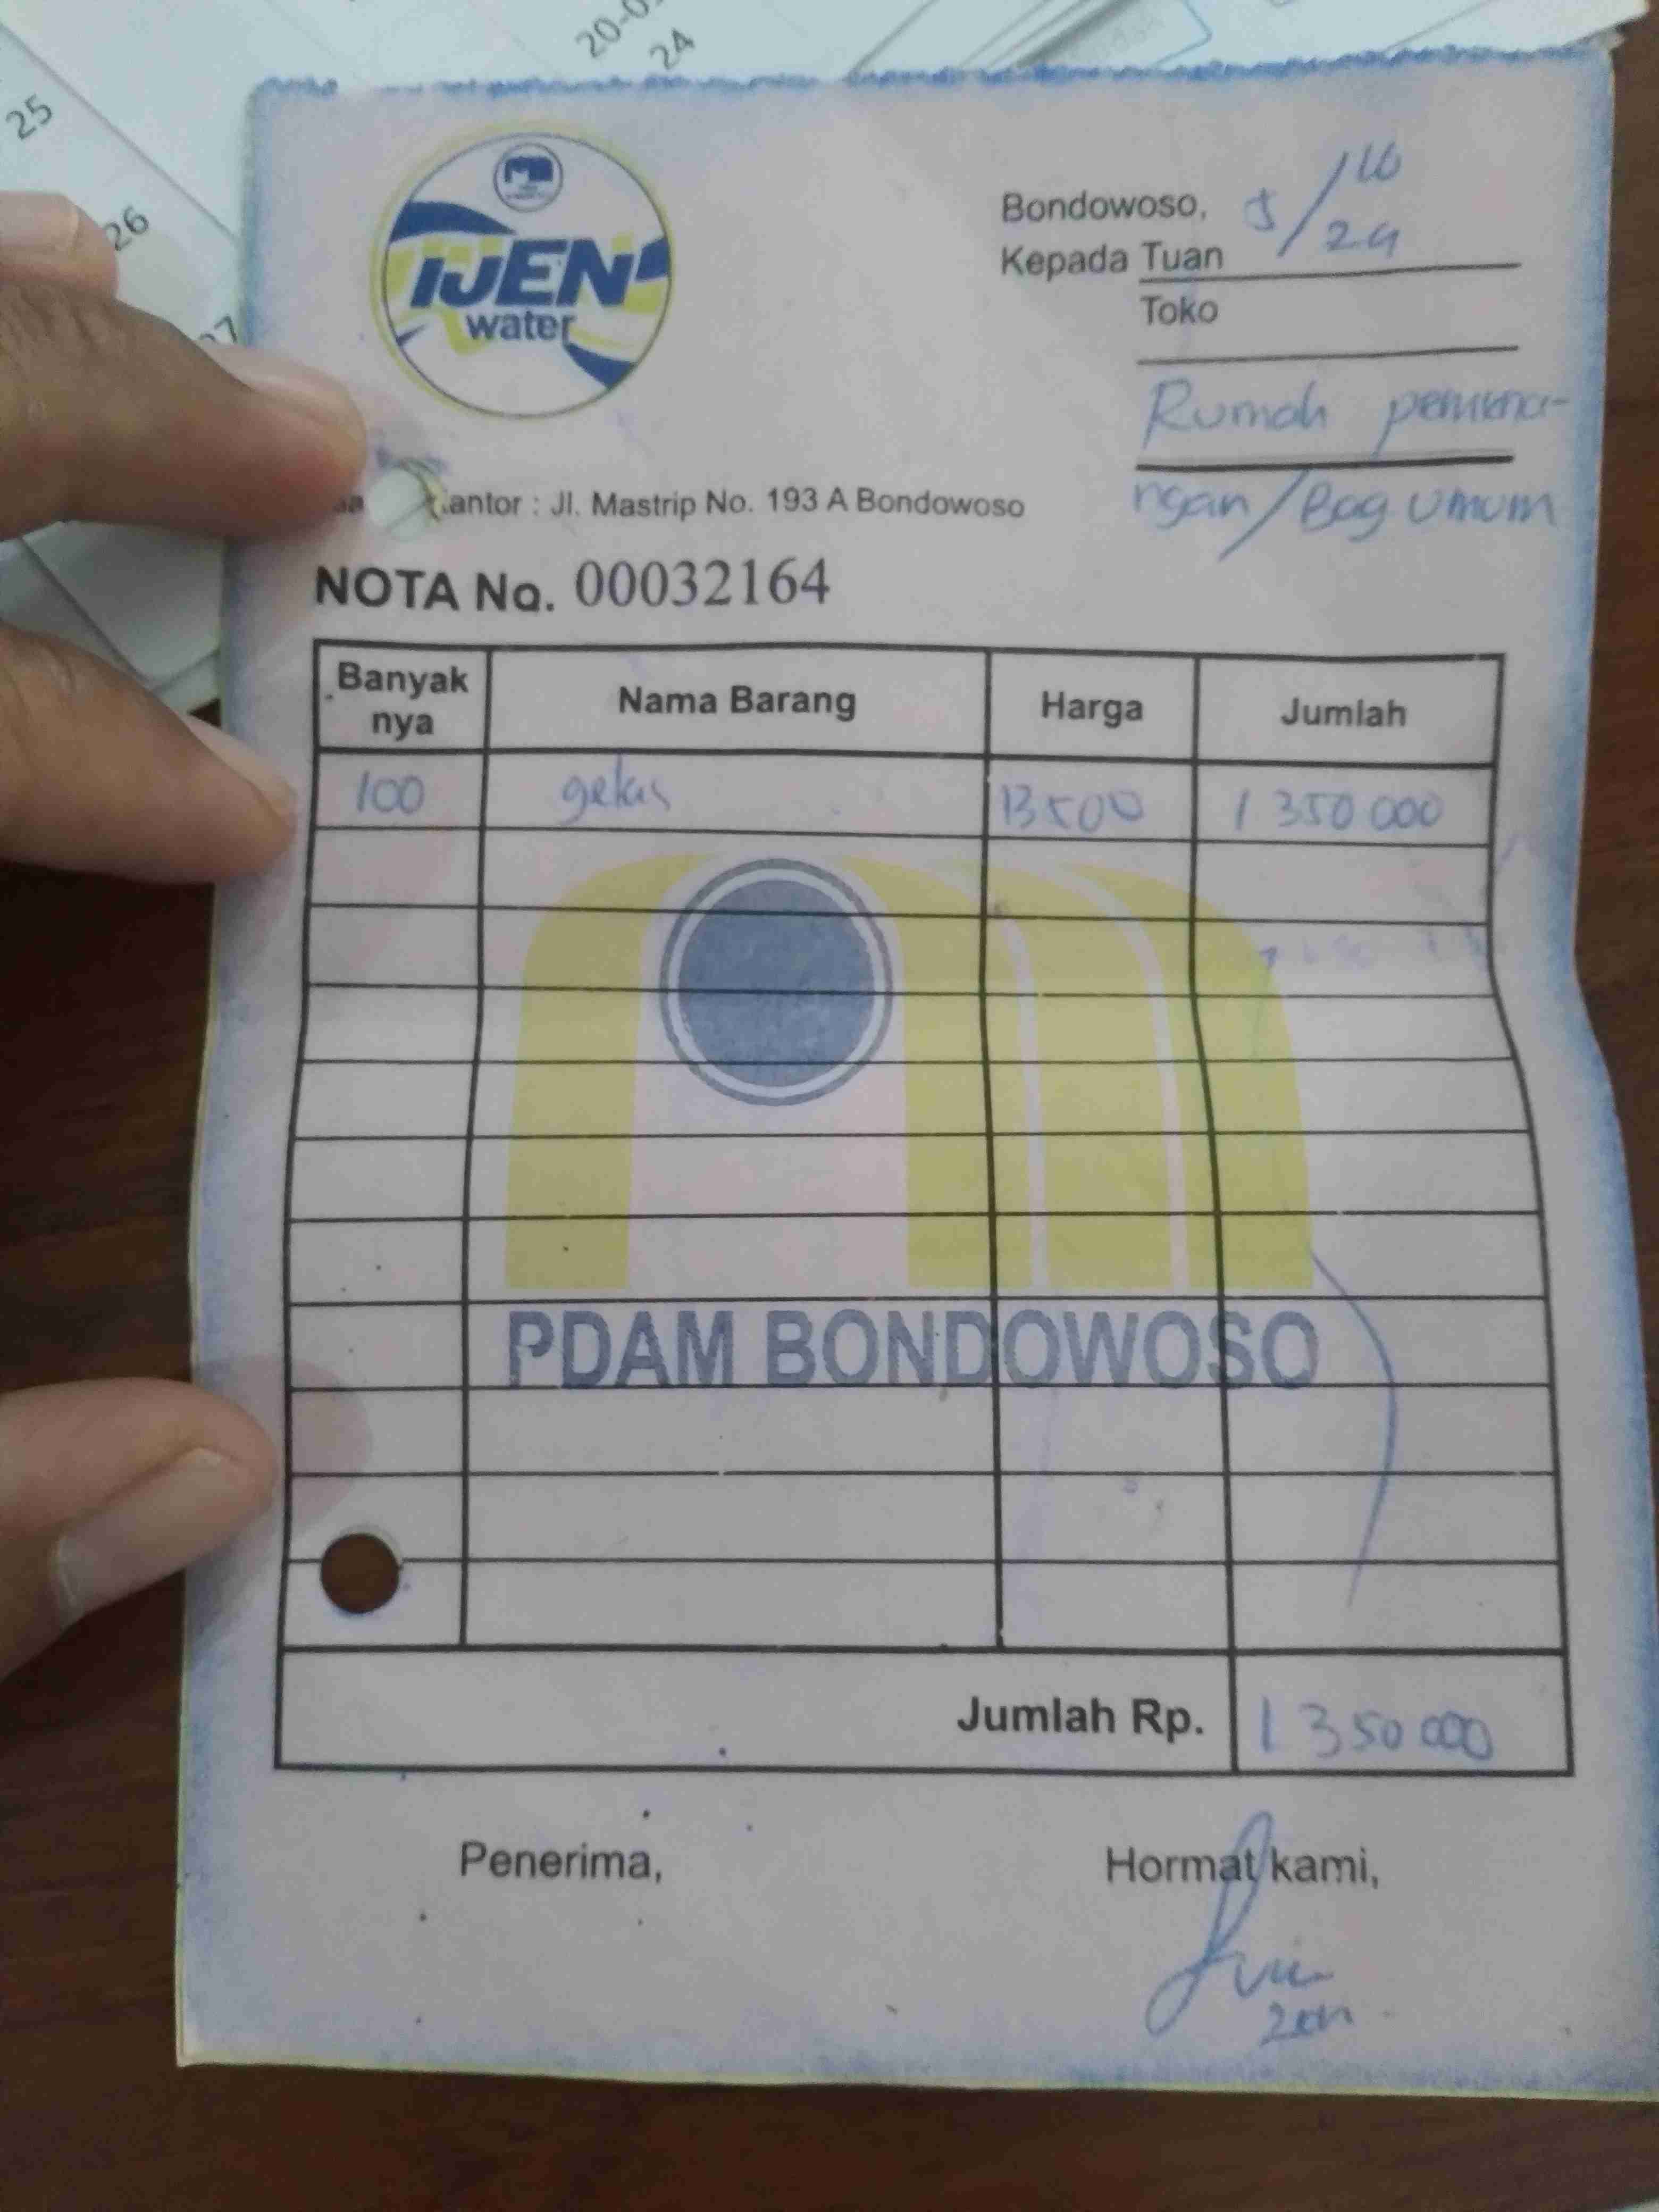 20-0
24
25
26
27
IJEN
water
Bondowoso, 5/10
24
Kepada Tuan
Toko
Rumah pemena-
ngan/Bag Umum
antor : Jl. Mastrip No. 193 A Bondowoso
NOTA No. 00032164
Banyak nya Nama Barang Harga Jumlah
100 gelas 13500 1 350 000
PDAM BONDOWOSO
Jumlah Rp. 1 350 000
Penerima, Hormat kami,